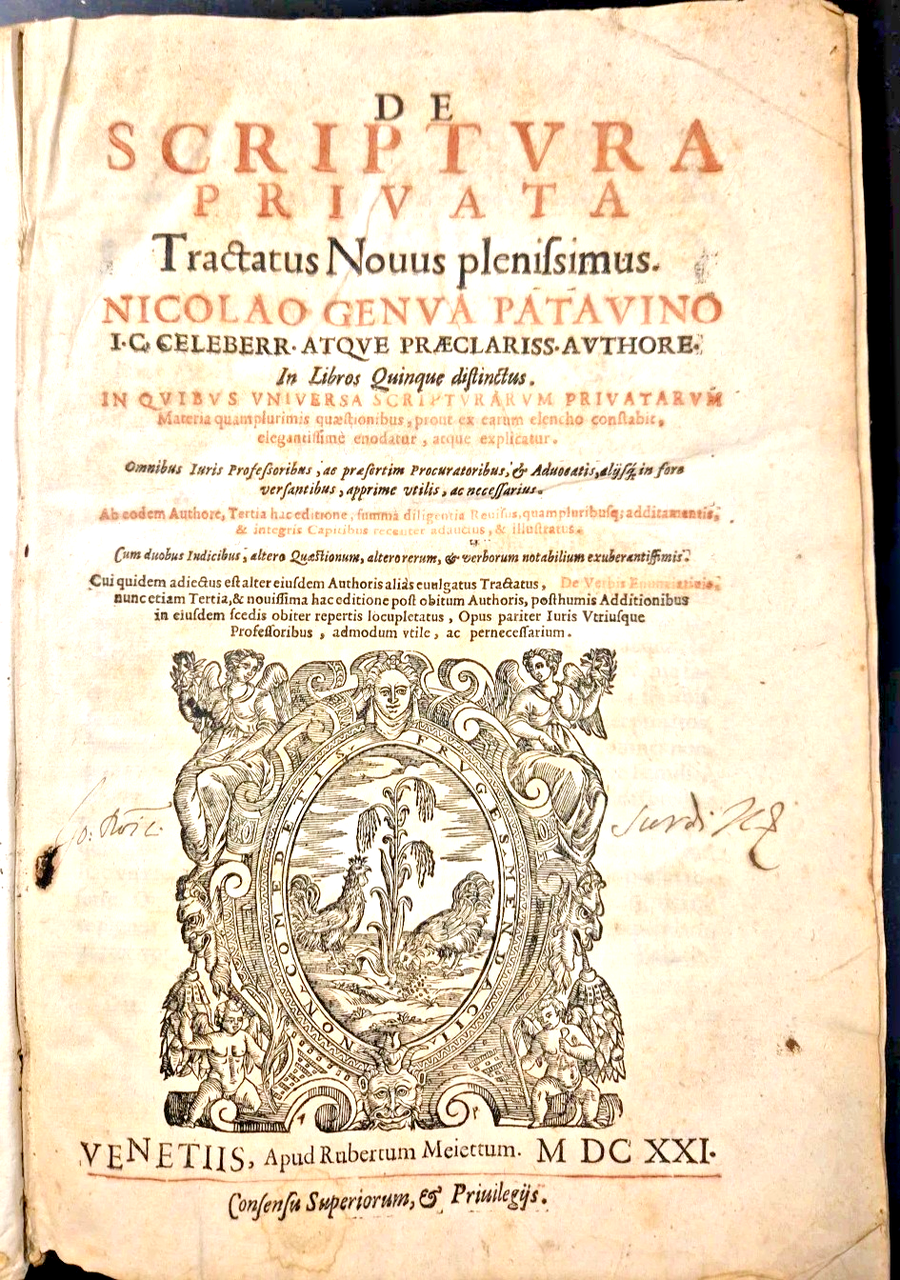 DE
SCRIPTVRA
PRIVATA
Tractatus Nouus pleniſsimus.
NICOLAO GENVA PATAVINO
I.C. CELEBERR. ATQVE PRÆCLARISS. AVTHORE.
In Libros Quinque diſtinctus.
IN QVIBVS VNIVERSA SCRIPTVRARVM PRIVATARVM
Materia quamplurimis quæſtionibus, prout ex earum elencho conſtabit,
elegantiſſimè enodatur, atque explicatur.
Omnibus Iuris Profeſſoribus, ac præſertim Procuratoribus, & Aduocatis, alijſq; in foro
verſantibus, apprime vtilis, ac neceſſarius.
Ab eodem Authore, Tertia hac editione, ſumma diligentia Reuiſus, quampluribuſq; additamentis,
& integris Capitibus recenter adauctus, & illuſtratus.
Cum duobus Indicibus, altero Quæſtionum, altero rerum, & verborum notabilium exuberantiſſimis.
Cui quidem adiectus eſt alter eiuſdem Authoris aliàs euulgatus Tractatus, De Verbis Enunciatiuis,
nunc etiam Tertia, & nouiſſima hac editione poſt obitum Authoris, poſthumis Additionibus
in eiuſdem ſcedis obiter repertis locupletatus, Opus pariter Iuris Vtriuſque
Profeſſoribus, admodum vtile, ac perneceſſarium.
NON COMEDETIS FRVGES MENDACII
VENETIIS, Apud Rubertum Meiettum. M DC XXI.
Conſenſu Superiorum, & Priuilegijs.